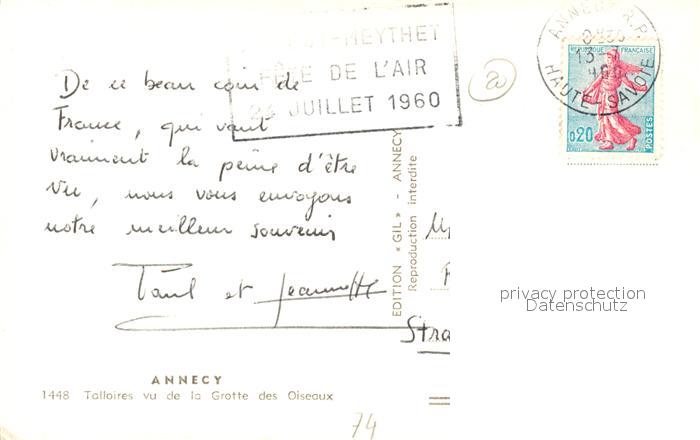 -MEYTHET
FÊTE DE L'AIR
24 JUILLET 1960
ANNECY R.P.
13-7
HAUTE-SAVOIE
REPUBLIQUE FRANÇAISE
0,20
POSTES
De ce beau coin de
France, qui vaut
vraiment la peine d'être
vu, nous vous envoyons
notre meilleur souvenir
Paul et Jeannette
EDITION « GIL » - ANNECY
Reproduction interdite
Stra
privacy protection
Datenschutz
ANNECY
1448 Talloires vu de la Grotte des Oiseaux
74